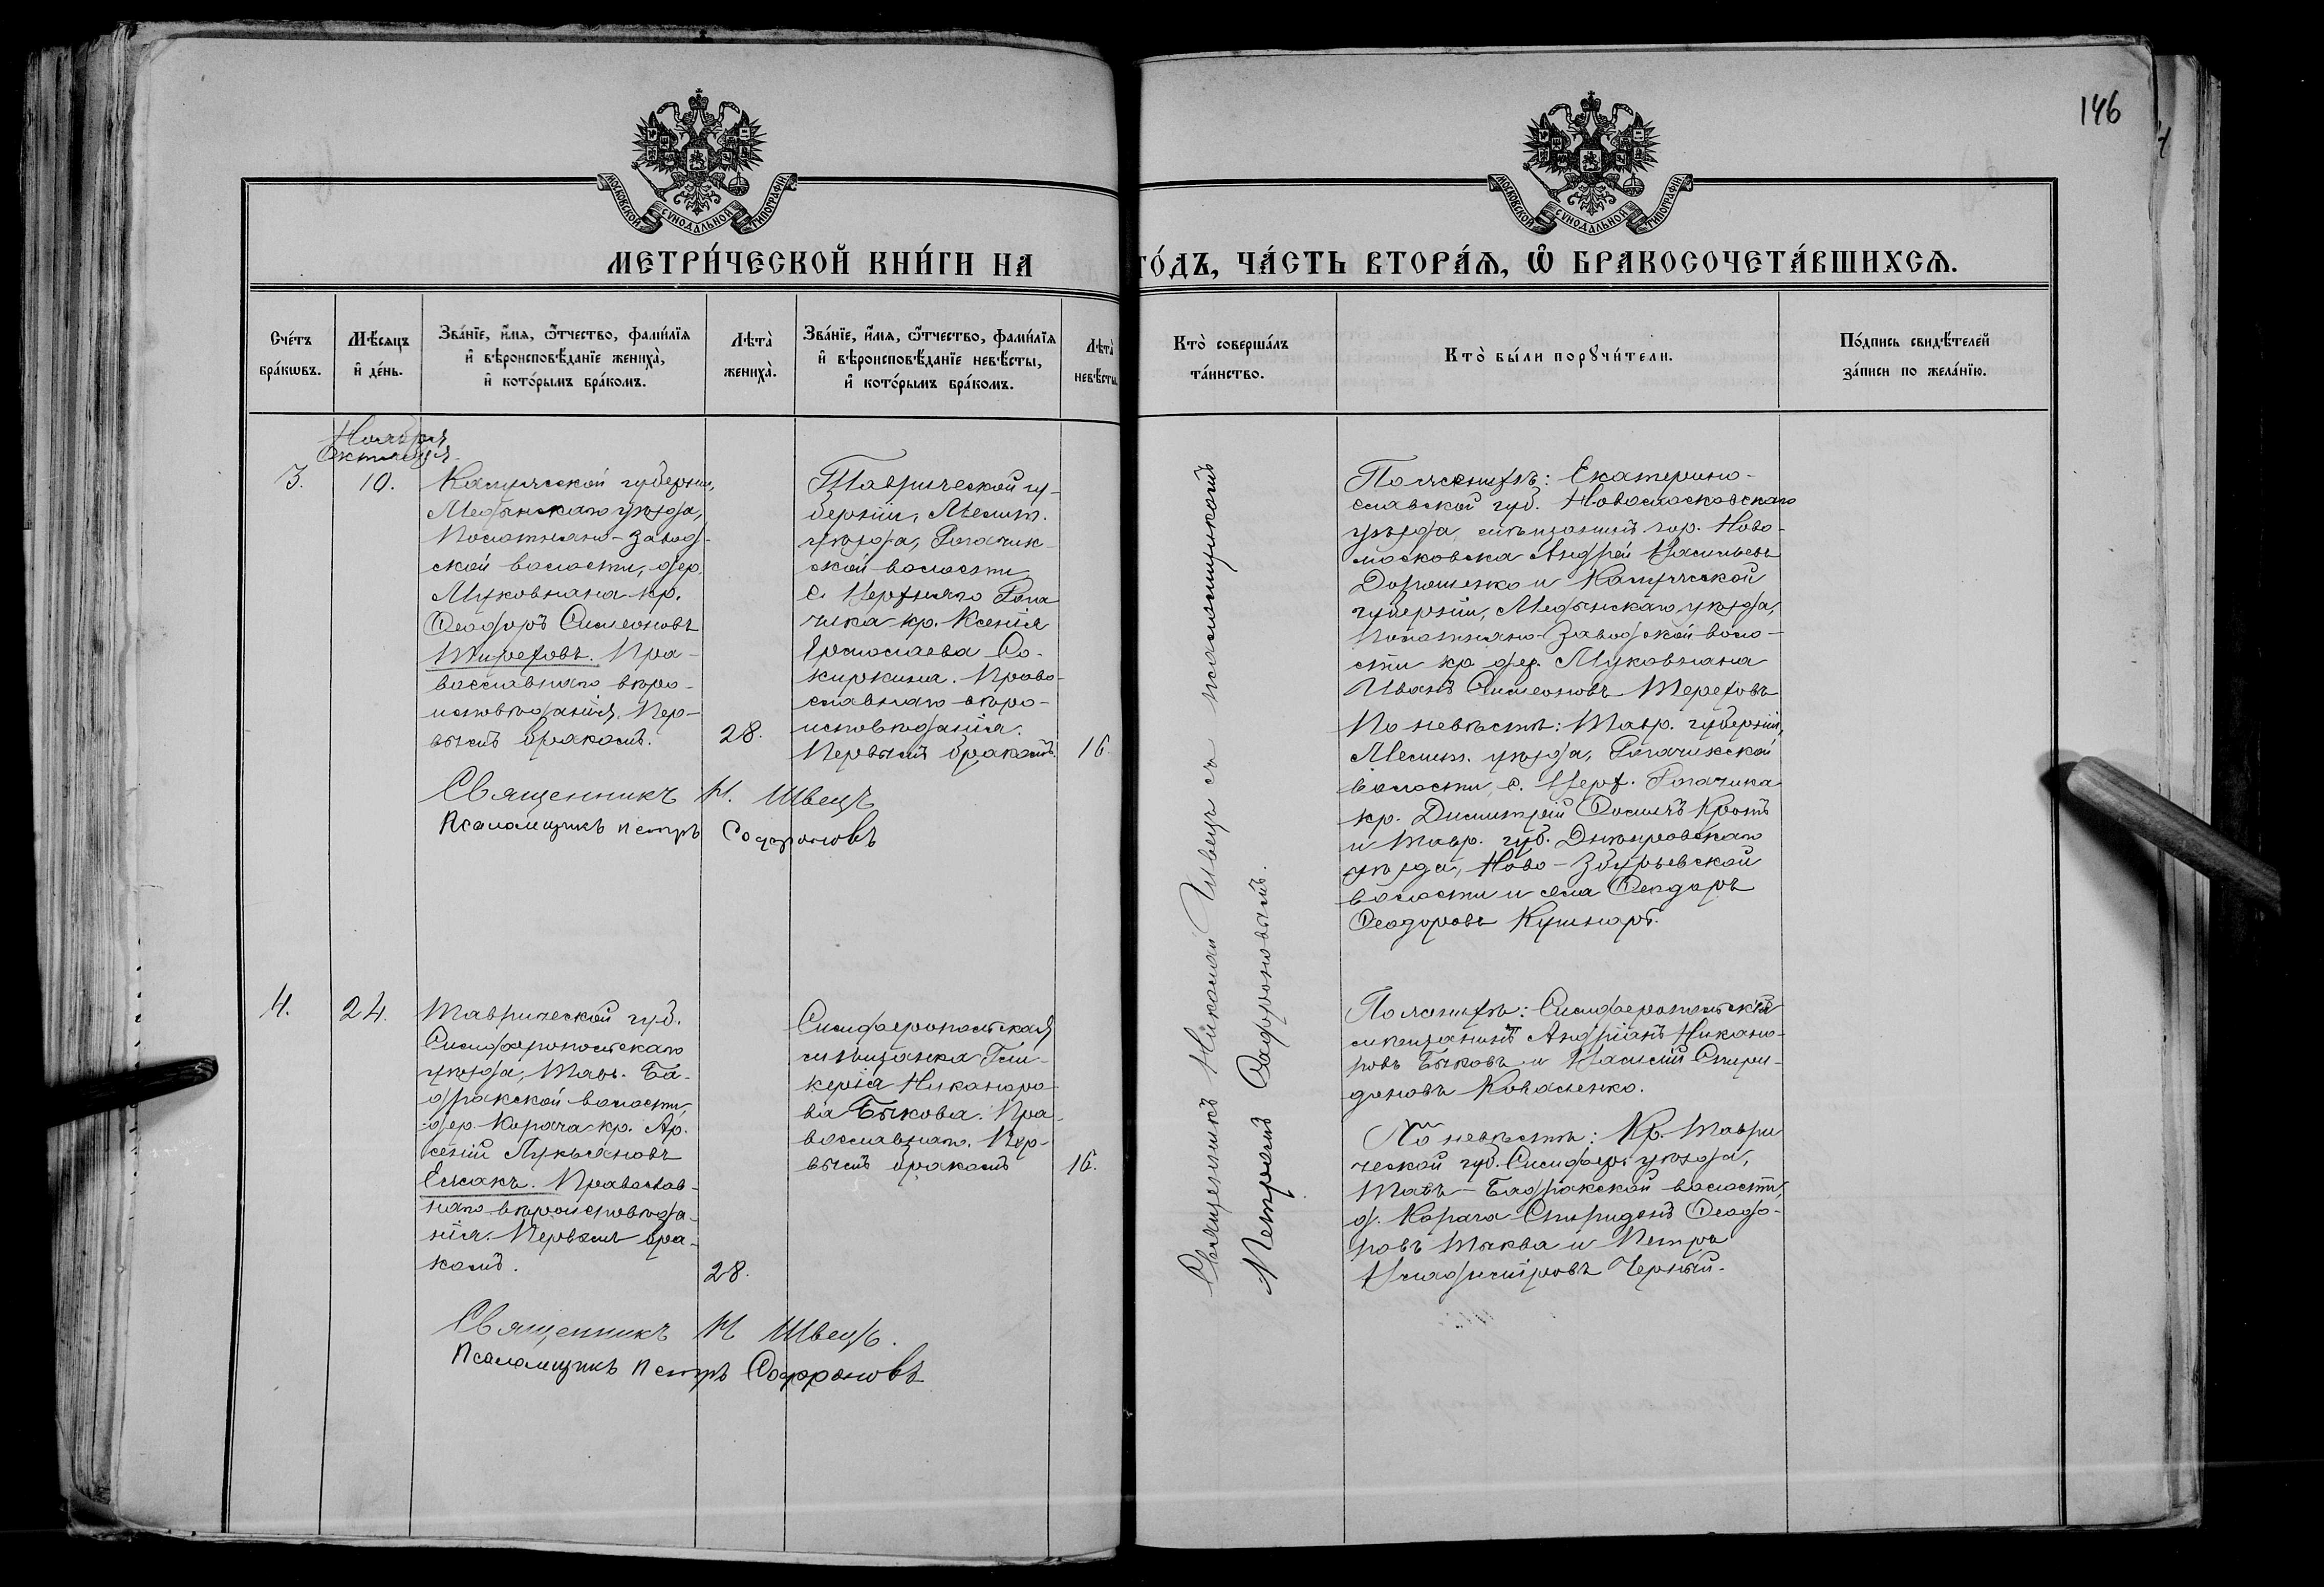 146
МОСКОВСКОЙ СѴНОДАЛЬНОЙ ТИПОГРАФІИ
МОСКОВСКОЙ СѴНОДАЛЬНОЙ ТИПОГРАФІИ
МЕТРИ́ЧЕСКОЙ КНИ́ГИ НА
ГО́ДЪ, ЧА́СТЬ ВТОРА́Ѧ, Ѽ БРАКОСОЧЕТА́ВШИХСѦ.
Сче́тъ
бра́кѡвъ.
Мѣ́сяцъ
и҆ де́нь.
Зва́нїе, и҆́мя, ѻ҆́тчество, фами́лїя
и҆ вѣроисповѣ́данїе жениха̀,
и҆ кото́рымъ бра́комъ.
Лѣта̀
жениха̀.
Зва́нїе, и҆́мя, ѻ҆́тчество, фами́лїя
и҆ вѣроисповѣ́данїе невѣ́сты,
и҆ кото́рымъ бра́комъ.
Лѣта̀
невѣ́сты.
Кто̀ соверша́лъ
та́инство.
Кто̀ бы́ли порꙋчи́тели.
По́дпись свидѣ́телей
за́писи по жела́нїю.
Ноября
Октября
3.
10.
Калужской губерніи,
Медынскаго уѣзда,
Полотняно-Завод-
ской волости, дер.
Муковнина кр.
Ѳеодоръ Симеоновъ
Тереховъ. Пра-
вославнаго вѣро-
исповѣданія, Пер-
вымъ бракомъ.
28.
Таврической гу-
берніи, Мелит.
уѣзда, Рогачик-
ской волости
с. Верхняго Рога
чика кр. Ксенія
Ермолаева Со-
киркина. Право-
славнаго вѣро-
исповѣданія.
Первымъ бракомъ.
16.
Священникъ Н. Швецъ
Псаломщикъ Петръ Софроновъ
Священникъ Николай Швецъ съ псаломщикомъ
Петромъ Софроновымъ.
По женихѣ: Екатерино-
славской губ. Новомосковскаго
уѣзда, мѣщанинъ гор. Ново-
московска Андрей Васильевъ
Дорошенко и Калужской
губерніи, Медынскаго уѣзда,
Полотняно-Заводской воло-
сти кр. дер. Муковнина
Иванъ Симеоновъ Тереховъ
По невѣстѣ: Тавр. губерніи,
Мелит. уѣзда, Рогачикской
волости, с. Верх. Рогачика
кр. Димитрій Ѳомичъ Кротъ
и Тавр. губ. Днѣпровскаго
уѣзда, Ново-Збурьевской
волости и села Ѳеодоръ
Ѳеодоровъ Кушниръ.
4.
24.
Таврической губ.
Симферопольскаго
уѣзда, Тавъ-Ба-
дракской волости,
дер. Карача кр. Ар-
сеній Лукьяновъ
Ермакъ. Православ-
наго вѣроисповѣда-
нія. Первымъ бра-
комъ.
28.
Симферопольская
мѣщанка Гли-
керія Никаноро-
ва Быкова. Пра-
вославнаго. Пер-
вымъ бракомъ
16.
Священникъ Н Швецъ.
Псаломщикъ Петръ Софроновъ
По женихѣ: Симферопольскій
мѣщанинъ Андріанъ Никано-
ровъ Быковъ и Василій Спири-
доновъ Коваленко.
По невѣстѣ: Кр. Таври
ческой губ. Симфер. уѣзда,
Тавъ-Бадракской волости,
д. Карача Спиридонъ Ѳеодо-
ровъ Тыква и Петръ
Владиміровъ Черный.